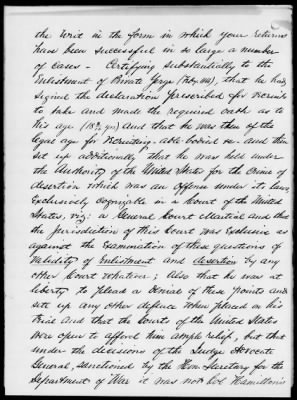 the Writ in the form in which your returns
has been successful in so large a number
of cases - Certifying substantially to the
Enlistment of Private Jorge that he had
signed the declaration prescribed for recruits
to take and made the required oath as to
his age (18 yrs) and that he was then of the
legal age for recruiting able bodied &c and then
set up additionally that he was held under
the Authority of the United States for the Crime of
desertion which was an Offense under its laws
Exclusively Cognizable in a Court of the United
States, viz; a General Court Martial and that
the jurisdiction of this Court was Exclusive as
against the Examination of these questions of
Validity of Enlistment and desertion by any
other Court whatever; Also that he was at
liberty to plead a denial of these points and
set up any other defence when placed on his
trial and that the Courts of the United States
were open to afford him ample relief, but that
under the decisions of the Judge Advocate
General, sanctioned by the Hon. Secretary for the
Department of War it was not Col Hamilton's